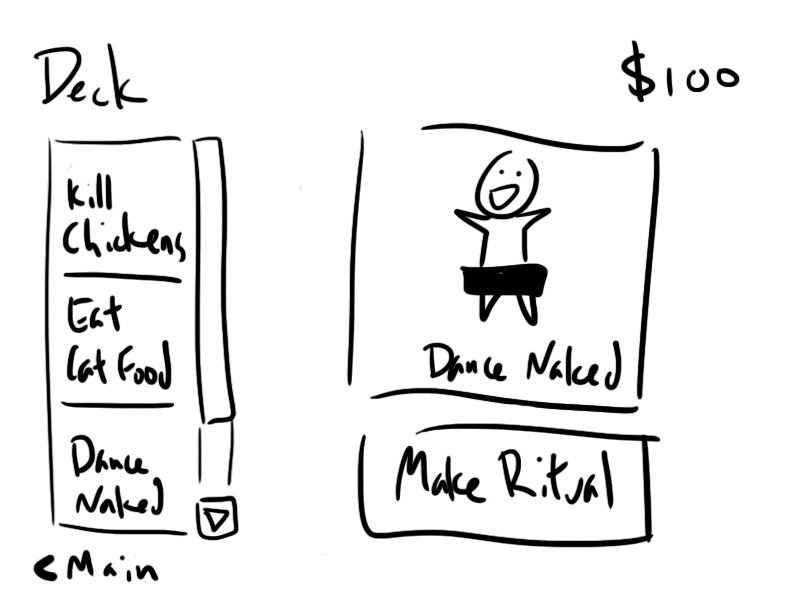 Deck
$100
Kill
Chickens
Eat
Cat Food
Dance
Naked
Dance Naked
Make Ritual
<Main